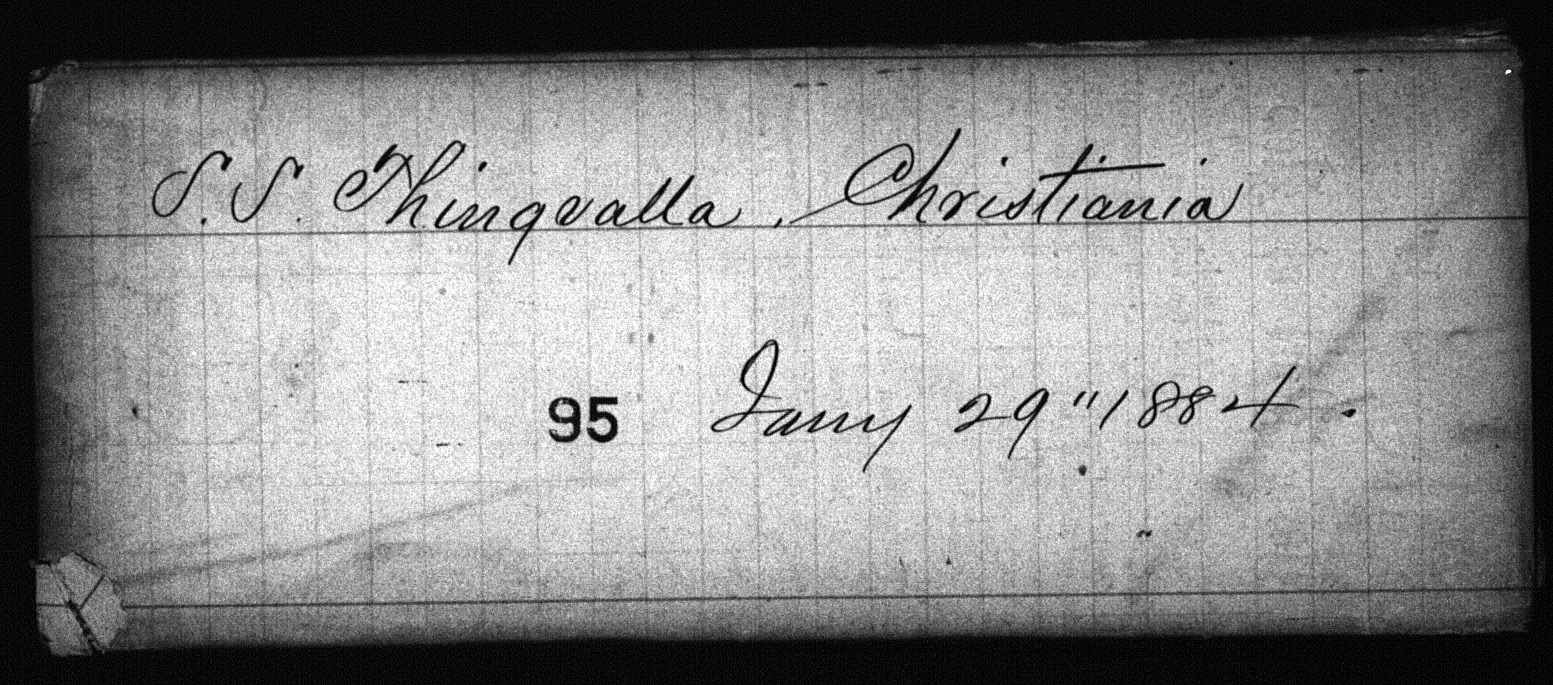 S.S. Thingvalla, Christiania
95 Jany 29" 1884.